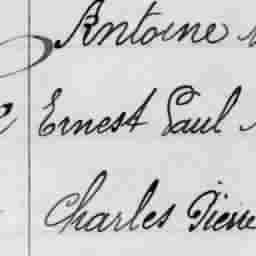 Antoine
Ernest Paul
Charles Pierre